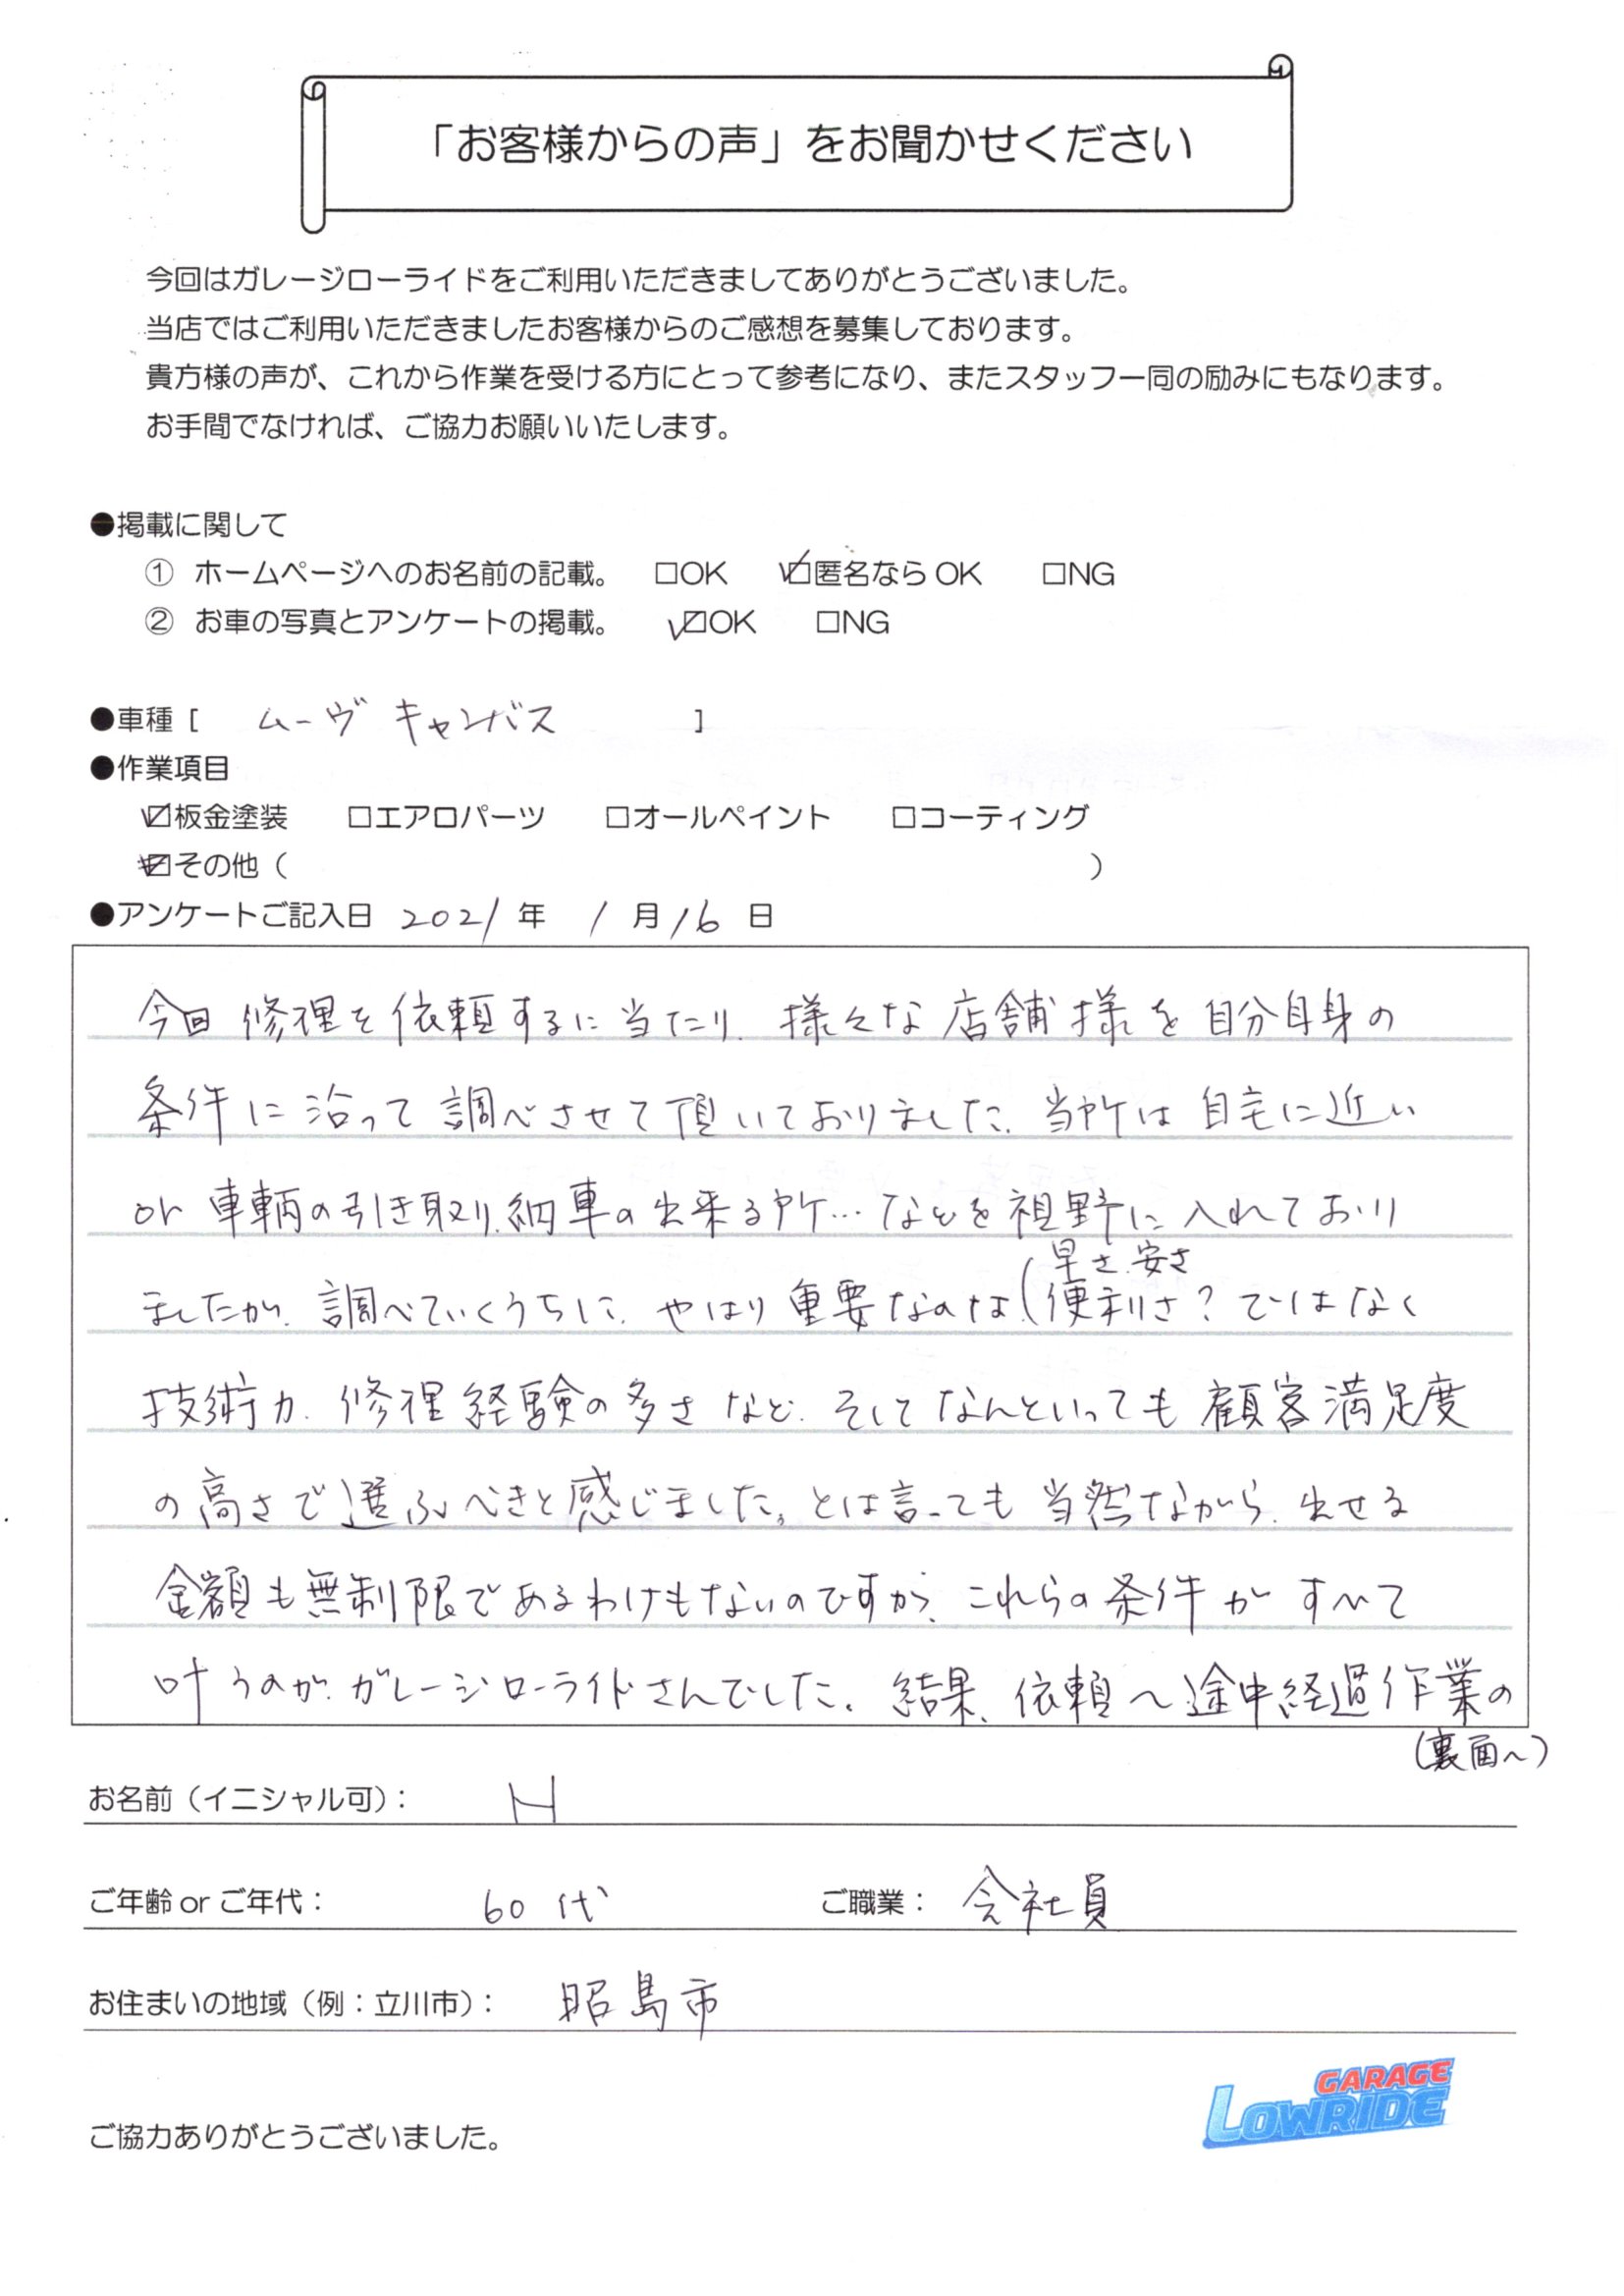 「お客様からの声」をお聞かせください
今回はガレージローライドをご利用いただきましてありがとうございました。
当店ではご利用いただきましたお客様からのご感想を募集しております。
貴方様の声が、これから作業を受ける方にとって参考になり、またスタッフ一同の励みにもなります。
お手間でなければ、ご協力お願いいたします。
●掲載に関して
① ホームページへのお名前の記載。 □OK ☑匿名ならOK □NG
② お車の写真とアンケートの掲載。 ☑OK □NG
●車種 [ ムーヴ キャンバス ]
●作業項目
☑板金塗装 □エアロパーツ □オールペイント □コーティング
☑その他（ ）
●アンケートご記入日 2021 年 1 月 16 日
今回 修理を依頼するに当たり、様々な店舗様を自分自身の
条件に沿って調べさせて頂いておりました。当所は自宅に近い
or 車輌の引き取り、納車の出来る所…などを視野に入れており
早さ、安さ
ましたが、調べていくうちに、やはり重要なのは、(便利さ？ではなく
技術力、修理経験の多さなど、そしてなんといっても顧客満足度
の高さで選ぶべきと感じました。とは言っても当然ながら、出せる
金額も無制限であるわけもないのですが、これらの条件がすべて
叶うのが、ガレージローライドさんでした。結果、依頼〜途中経過作業の
(裏面へ)
お名前（イニシャル可）： H
ご年齢 or ご年代： 60代 ご職業： 会社員
お住まいの地域（例：立川市）： 昭島市
GARAGE
LOWRIDE
ご協力ありがとうございました。